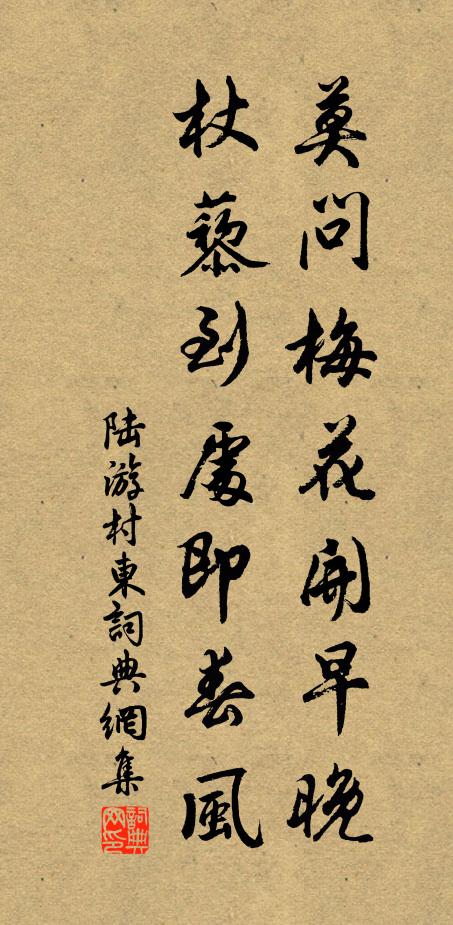 莫問梅花開早晚
杖藜到處即春風
陆游村東詞典網集
詞典
网印